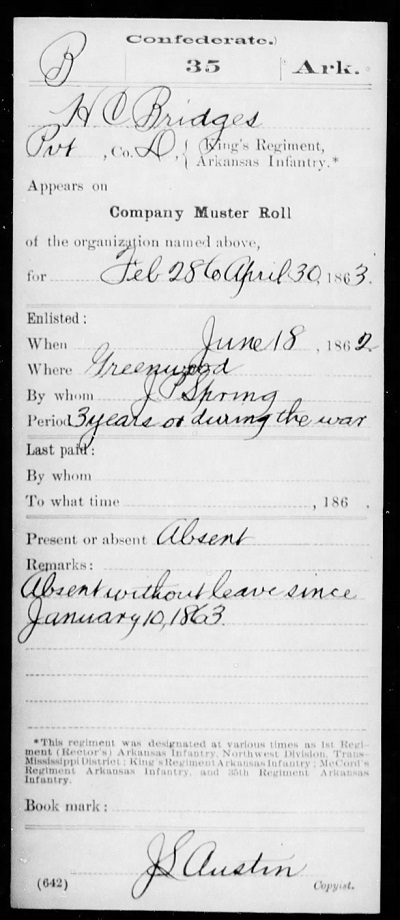 Confederate.)
B 35 Ark.
H C Bridges
Pvt, Co. D, { King's Regiment,
Arkansas Infantry.*
Appears on
Company Muster Roll
of the organization named above,
for Feb 28 to April 30, 1863.
Enlisted:
When June 18, 1862.
Where Greenwood
By whom J P Spring
Period 3 years or during the war
Last paid:
By whom
To what time , 186 .
Present or absent Absent
Remarks:
Absent without leave since
January 10, 1863.
*This regiment was designated at various times as 1st Regi-
ment (Rector's) Arkansas Infantry, Northwest Division, Trans-
Mississippi District; King's Regiment Arkansas Infantry; McCord's
Regiment Arkansas Infantry, and 35th Regiment Arkansas
Infantry.
Book mark:
J S Austin
(642) Copyist.